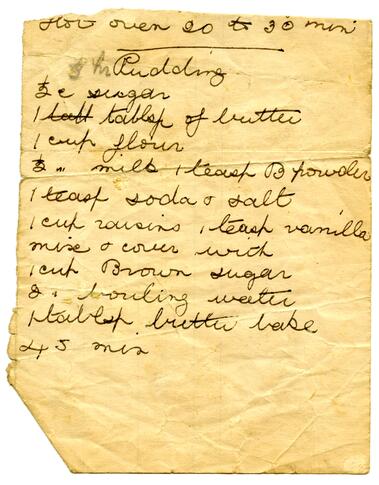 Hot oven 20 to 30 min
Pudding
½ c sugar
1 tablsp of butter
1 cup flour
½ " milk 1 teasp B powder
1 teasp soda & salt
1 cup raisins 1 teasp vanilla
mix & cover with
1 cup Brown sugar
2 " bouling water
1 tablsp butter bake
45 min